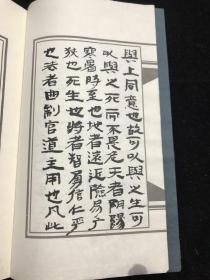 與上同意也故可以與之生可
以與之死而不畏危天者陰陽
寒暑時至也地者遠近險易广
狄也死生也將者智爲信仁平
也法者曲制官道主用也凡此